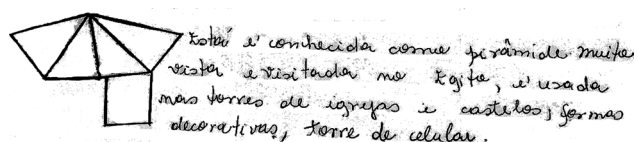 Está é conhecida como pirâmide muito
vista e visitada no Egito, é usada
nas torres de igrejas e castelos, formas
decorativas, torre de celular.